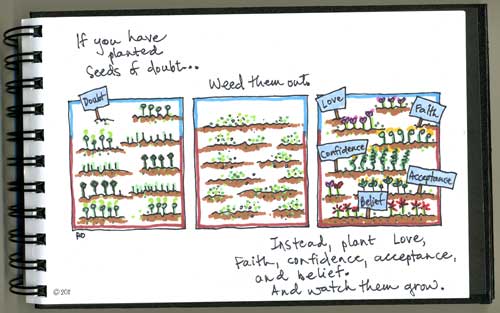 If you have
planted
Seeds of doubt...
Weed them out.
Doubt
Love
Faith
Confidence
Acceptance
Belief
Instead, plant Love,
Faith, confidence, acceptance,
and belief.
And watch them grow.
© 2011